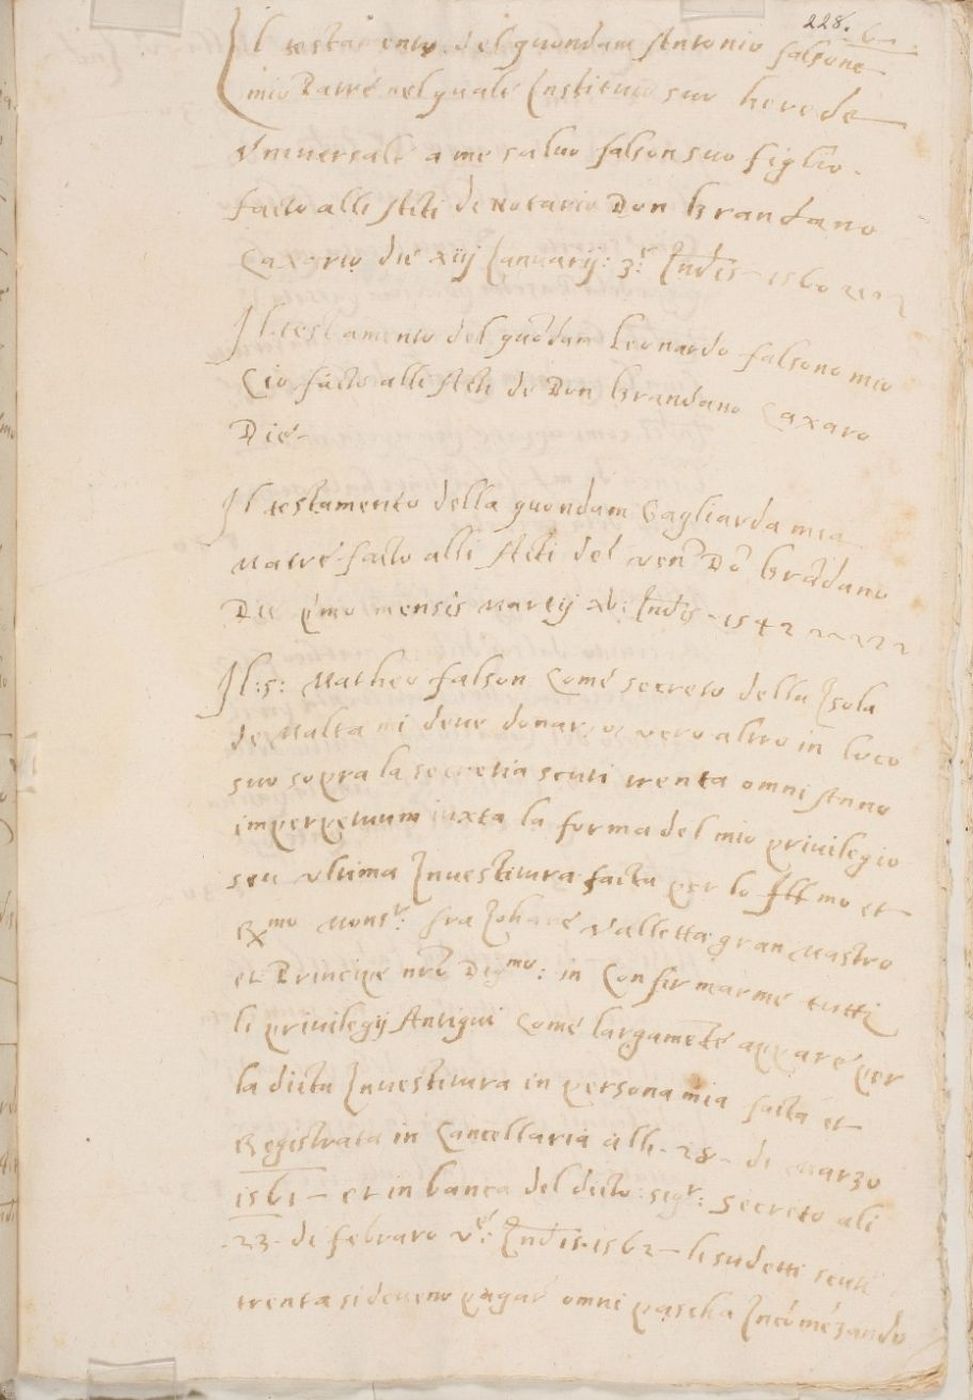 228. 6
Il testamento del quondam Antonio falsone
mio Patré nel qualé Instituio suo herede
Vniuersalé a me saluo falson suo figlio.
facto alli Acti de Notario Don Brandano
Caxario dié xiij Januarij: 3.ᵉ Indis 1560
Il testamento del quōdam Leonardo falsono mio
Cio facto alli Acti de Don Brandano Caxaro
Dié
Il testamento della quondam Gagliarda mia
Matré facto alli Acti del ven: Dō Brādano
Dié pimo mensis Martij xv: Indis 1542
Il: s: Matheo falson Comé secreto della Isola
de Malta mi deue donar, o vero altro in loco
suo sopra la secretia scuti trenta omni Anno
imperpetuum iuxta la forma del mio priuilegio
seu vltima Inuestitura facta per lo Illmo et
Exmo Monsr: fra Johané Valletta gran Mastro
et Principe nrō Digmo: in Confirmarmé tutti
li priuilegij Antiqui Comé largaméte apparé per
la dicta Inuestitura in persona mia facta et
Registrata in Cancellaria alli 28 di Marzo
1561 et in banca del dicto sigr: Secreto ali
23 di febraro vᵉ: Indis 1562 li sudetti scuti
trenta si deueno pagar omni pascha Incōmézando